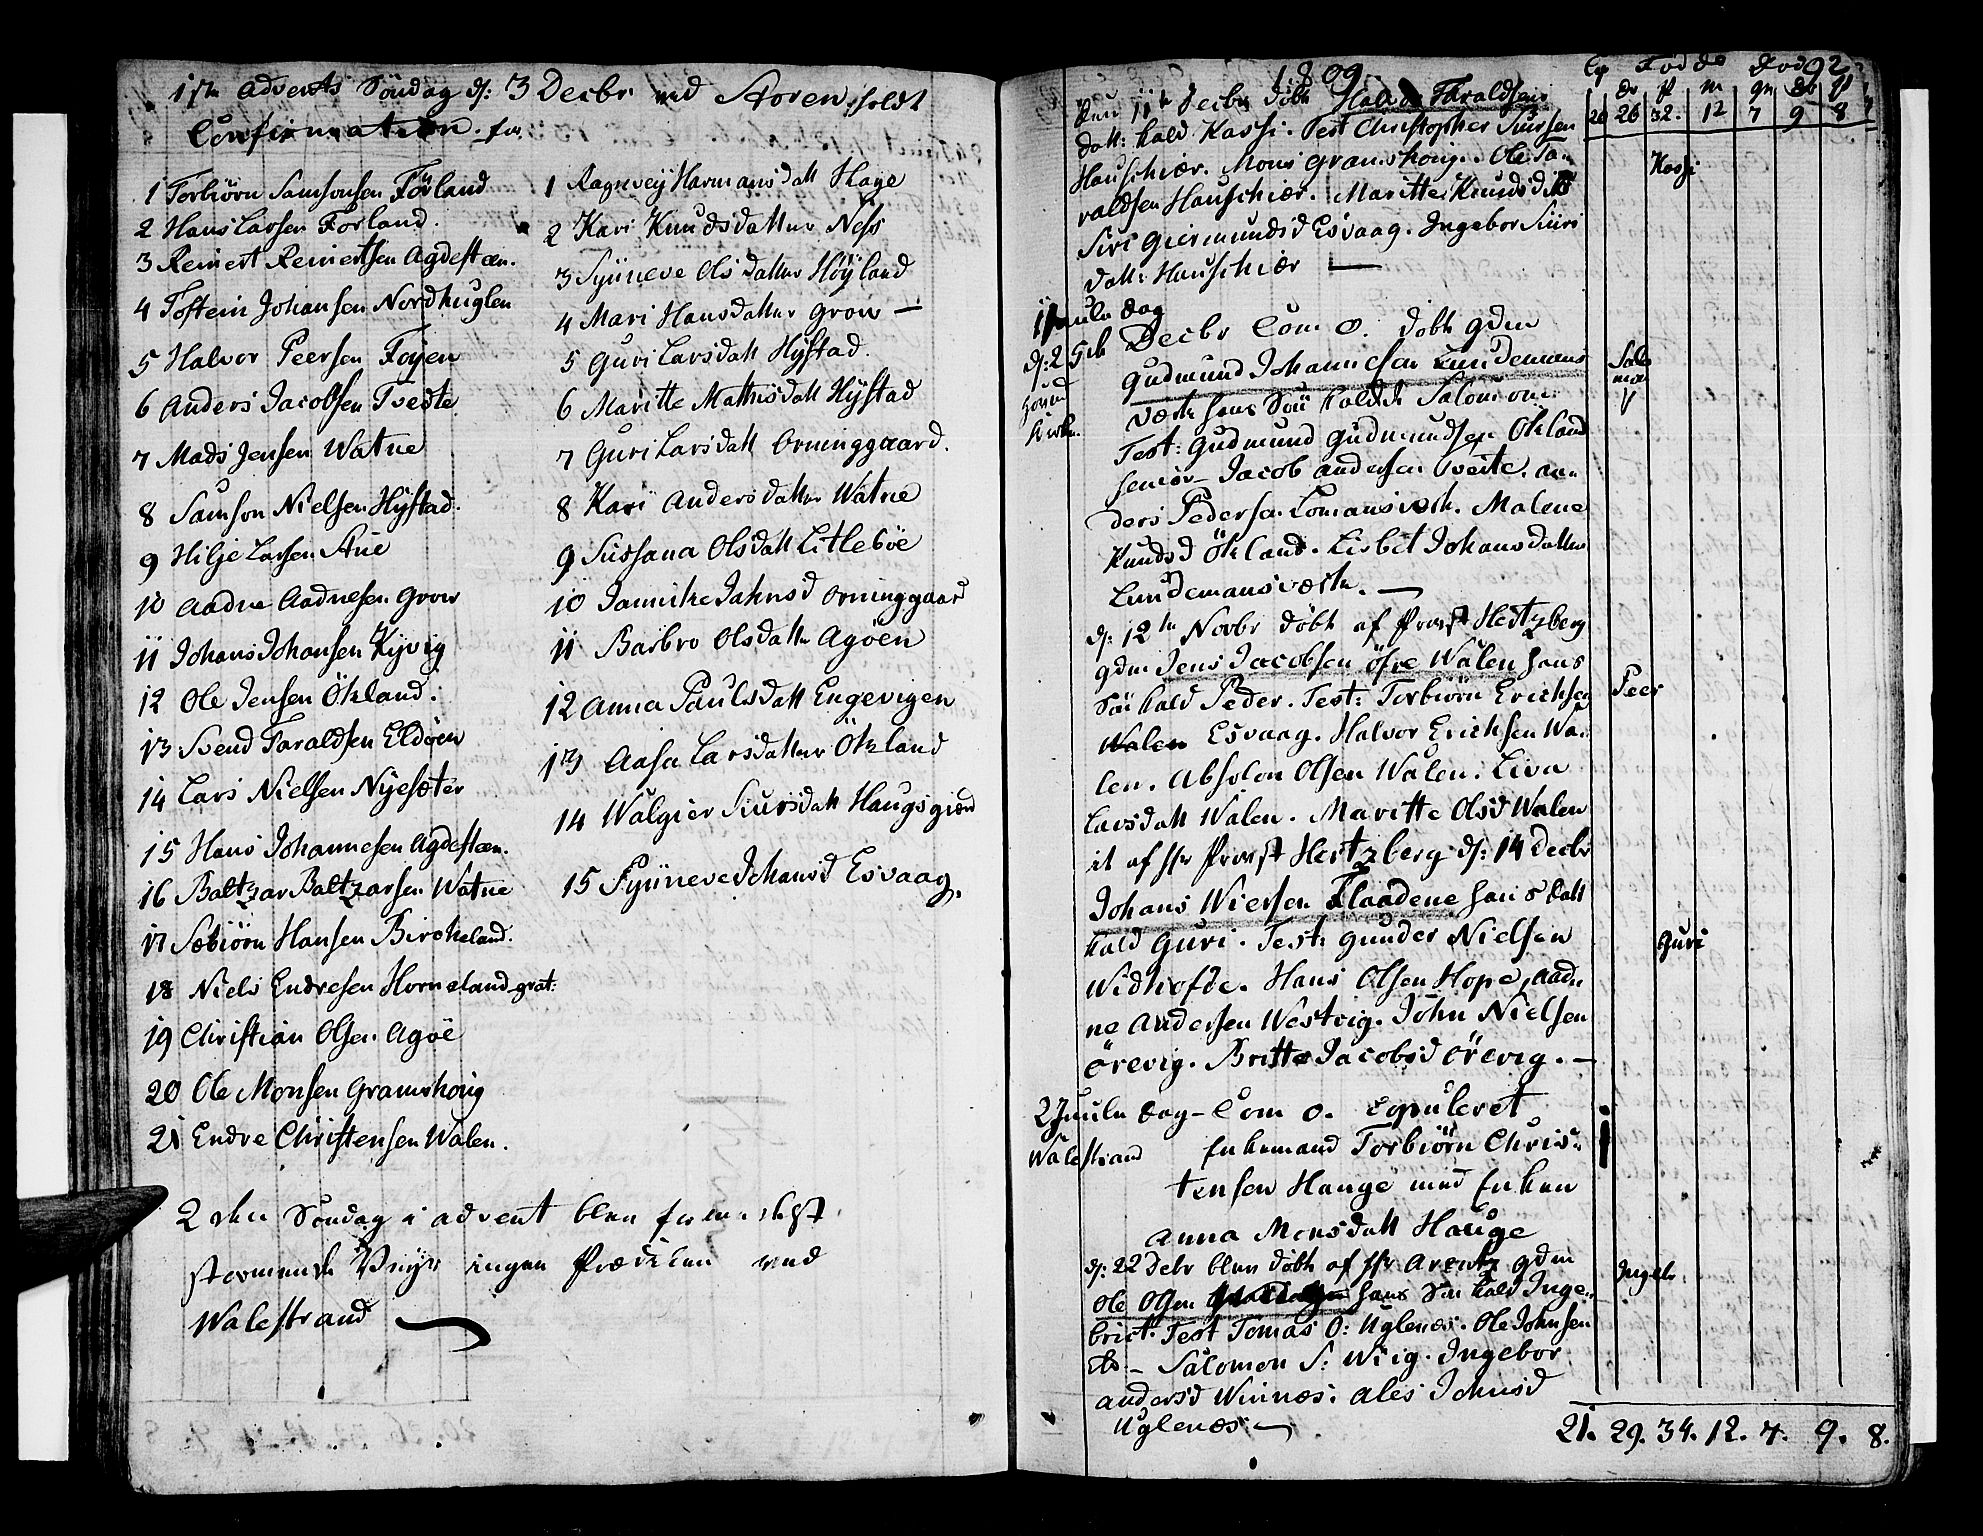 1ste Advents Söndag d: 3 Decbr ved Støren, holdt
Confirmation for
1 Torbiörn Samsonsen Förland
2 Hans Larsen Forland.
3 Reinert Reinertsen Agdesteen.
4 Tostein Johansen Nordhuglen
5 Halvor Peersen Føyen
6 Anders Jacobsen Tvedte
7 Mads Jensen Watne
8 Samson Nielsen Hÿstad.
9 Hilje Larsen Aue
10 Aadne Aadnesen Grow
11 Johans Johansen Kyvig
12 Ole Jensen Ökland.
13 Svend Taraldsen Eldöen
14 Lars Nielsen Nyesæter
15 Hans Johannesen Agdesteen.
16 Baltzar Baltzarsen Watne
17 Sæbiörn Hansen Bircheland.
18 Niels Endresen Horneland grat:
19 Christian Olsen Agöe
20 Ole Monsen Gramshoug
21 Endre Christensen Walen.
1 Ragnvey Harmansdatt Hage
2 Kari Knudsdatter Ness
3 Synneve Olsdatter Höyland
4 Mari Hansdatter Grow —
5 Guri Larsdatt Hÿstad.
6 Maritte Mathisdatt Hÿstad
7 Guri Larsdatt Orninggaard.
8 Kari Andersdatter Watne
9 Sussana Olsdatt Litleböe
10 Jannike Jahnsd Orninggaard
11 Barbro Olsdatter Agöen
12 Anna Paulsdatt Engevigen
13 Aasa Larsdatter Ökland
14 Walgier Siursdatt Haugsgierd
15 Synneve Johansd Esvaag.
2den Söndag i Advent blev formedelst
stormende Veyr ingen Prædiken ved
Walestrand
1809.
92
Cop Fødde Døde
20 26 32. 12 7 9 8
Den 11te Decbr döbt Halvor Taraldsens
datt: kald Kassi. Test Christopher Siursen
Kassi
Hauschiær. Mons Gramshoug. Ole Ta-
raldsen Hauschiær. Maritte Knudsdatt
Siri Giermundsd Esvaag. Ingebor Siurs
datt: Hauschiær —
1 Juule Dag
d: 25de Decbr Com 0. döbt gdm
Hovid
Kirke.
Gudmund Johannesen Lundemans
Salo
mon
værk hans Sön kaldet Salomon.
Test: Gudmund Gudmundsen Ökland
senior - Jacob Andersen Tveite. An-
ders Pedersen Lomansværk. Malene
Knudsd Ökland. Lisbet Johansdatter
Lundemansværk. —
d: 12te Novbr döbt af Provst Hertzberg
gdm Jens Jacobsen öfre Walen hans
Sön kald Peder. Test: Torbiörn Erichsen
Peer
Walen Esvaag. Halvor Erichsen Wa-
len. Absolon Olsen Walen. Liva
Larsdatt Walen. Maritte Olsd Walen
it af Hr Provst Hertzberg d: 14 Decbr
Johans Wiersen Flaadene hans datt
kald Guri. Test: Gunder Nielsen
Guri
Widhofde. Hans Olsen Hope, Aad-
ne Andersen Westvig. John Nielsen
Örevig. Britte Jacobsd Örevig. —
2 Juule Dag - Com 0. Copuleret
Walestrand Enkemand Torbiörn Chris-
1
tensen Hauge med Enken
Anna Monsdatt Hauge
d: 22 Debr blev döbt af Hr Arentz gdm
Ole Olsen hans Sön kald Inge-
Ingebr.
brict. Test Tomas O: Uglenes. Ole Johnsen
do - Salomon S: Wiig. Ingebor
Andersd Winnæs. Ales Johnsd
Uglenæs. —
21. 29. 34. 12. 7. 9. 8.